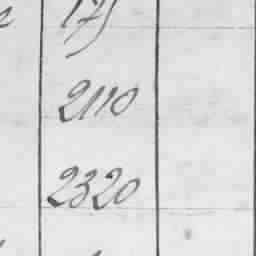 2110
2320